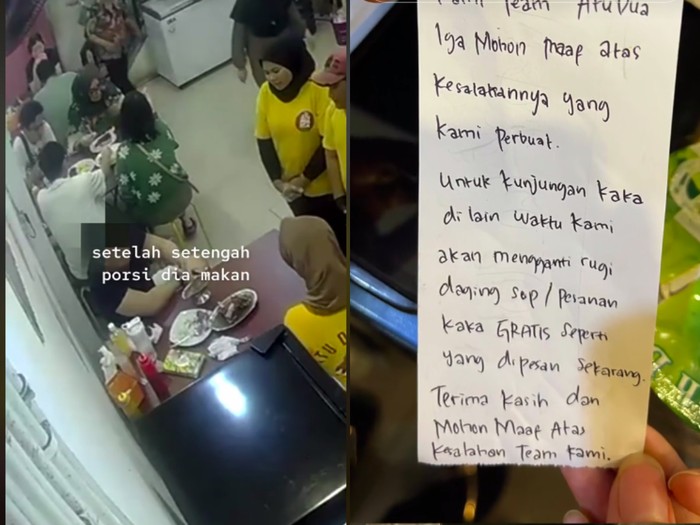 setelah setengah
porsi dia makan
Team
Iga Mohon maaf atas
Kesalahannya yang
kami perbuat.
Untuk kunjungan kaka
di lain waktu kami
akan mengganti rugi
daging sop / Pesanan
kaka GRATIS seperti
yang dipesan sekarang.
Terima kasih dan
Mohon Maaf Atas
Kesalahan Team Kami.